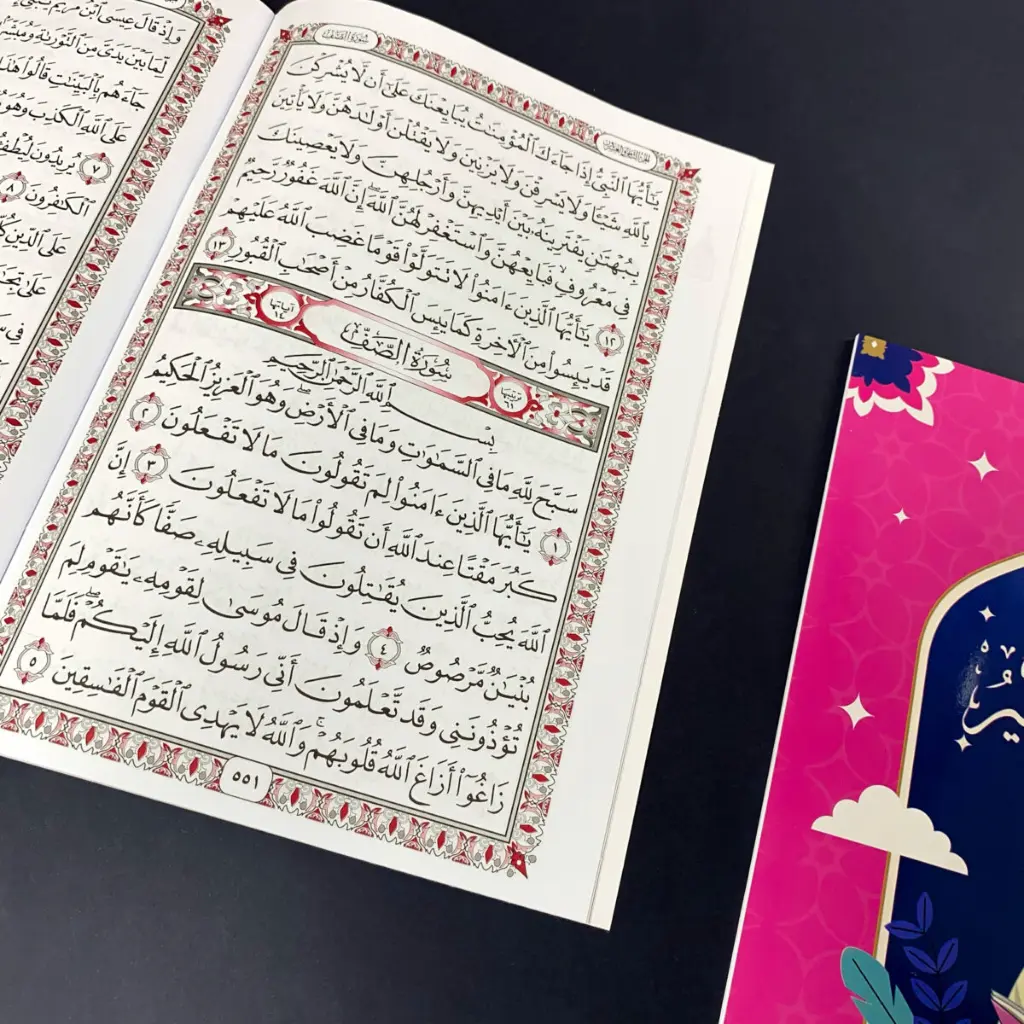 سُورَةُ الصَّفِّ
يَٰٓأَيُّهَا ٱلنَّبِيُّ إِذَا جَآءَكَ ٱلْمُؤْمِنَٰتُ يُبَايِعْنَكَ عَلَىٰٓ أَن لَّا يُشْرِكْنَ
بِٱللَّهِ شَيْـًٔا وَلَا يَسْرِقْنَ وَلَا يَزْنِينَ وَلَا يَقْتُلْنَ أَوْلَٰدَهُنَّ وَلَا يَأْتِينَ
بِبُهْتَٰنٍ يَفْتَرِينَهُۥ بَيْنَ أَيْدِيهِنَّ وَأَرْجُلِهِنَّ وَلَا يَعْصِينَكَ
فِى مَعْرُوفٍ فَبَايِعْهُنَّ وَٱسْتَغْفِرْ لَهُنَّ ٱللَّهَ إِنَّ ٱللَّهَ غَفُورٌ رَّحِيمٌ
١٢ يَٰٓأَيُّهَا ٱلَّذِينَ ءَامَنُوا۟ لَا تَتَوَلَّوْا۟ قَوْمًا غَضِبَ ٱللَّهُ عَلَيْهِمْ
قَدْ يَئِسُوا۟ مِنَ ٱلْـَٔاخِرَةِ كَمَا يَئِسَ ٱلْكُفَّارُ مِنْ أَصْحَٰبِ ٱلْقُبُورِ ١٣
ترتيبها ٦١ سُورَةُ الصَّفِّ آياتها ١٤
بِسْمِ ٱللَّهِ ٱلرَّحْمَٰنِ ٱلرَّحِيمِ
سَبَّحَ لِلَّهِ مَا فِى ٱلسَّمَٰوَٰتِ وَمَا فِى ٱلْأَرْضِ وَهُوَ ٱلْعَزِيزُ ٱلْحَكِيمُ
١ يَٰٓأَيُّهَا ٱلَّذِينَ ءَامَنُوا۟ لِمَ تَقُولُونَ مَا لَا تَفْعَلُونَ ٢
كَبُرَ مَقْتًا عِندَ ٱللَّهِ أَن تَقُولُوا۟ مَا لَا تَفْعَلُونَ ٣ إِنَّ
ٱللَّهَ يُحِبُّ ٱلَّذِينَ يُقَٰتِلُونَ فِى سَبِيلِهِۦ صَفًّا كَأَنَّهُم
بُنْيَٰنٌ مَّرْصُوصٌ ٤ وَإِذْ قَالَ مُوسَىٰ لِقَوْمِهِۦ يَٰقَوْمِ لِمَ
تُؤْذُونَنِى وَقَد تَّعْلَمُونَ أَنِّى رَسُولُ ٱللَّهِ إِلَيْكُمْ فَلَمَّا
زَاغُوٓا۟ أَزَاغَ ٱللَّهُ قُلُوبَهُمْ وَٱللَّهُ لَا يَهْدِى ٱلْقَوْمَ ٱلْفَٰسِقِينَ ٥
٥٥١
وَإِذْ قَالَ عِيسَى ٱبْنُ مَرْيَمَ
لِّمَا بَيْنَ يَدَىَّ مِنَ ٱلتَّوْرَىٰةِ
جَآءَهُم بِٱلْبَيِّنَٰتِ قَالُوا۟ هَٰذَا
عَلَى ٱللَّهِ ٱلْكَذِبَ وَهُوَ
٧ يُرِيدُونَ
ٱلْكَٰفِرُونَ ٨
عَلَى ٱلدِّينِ